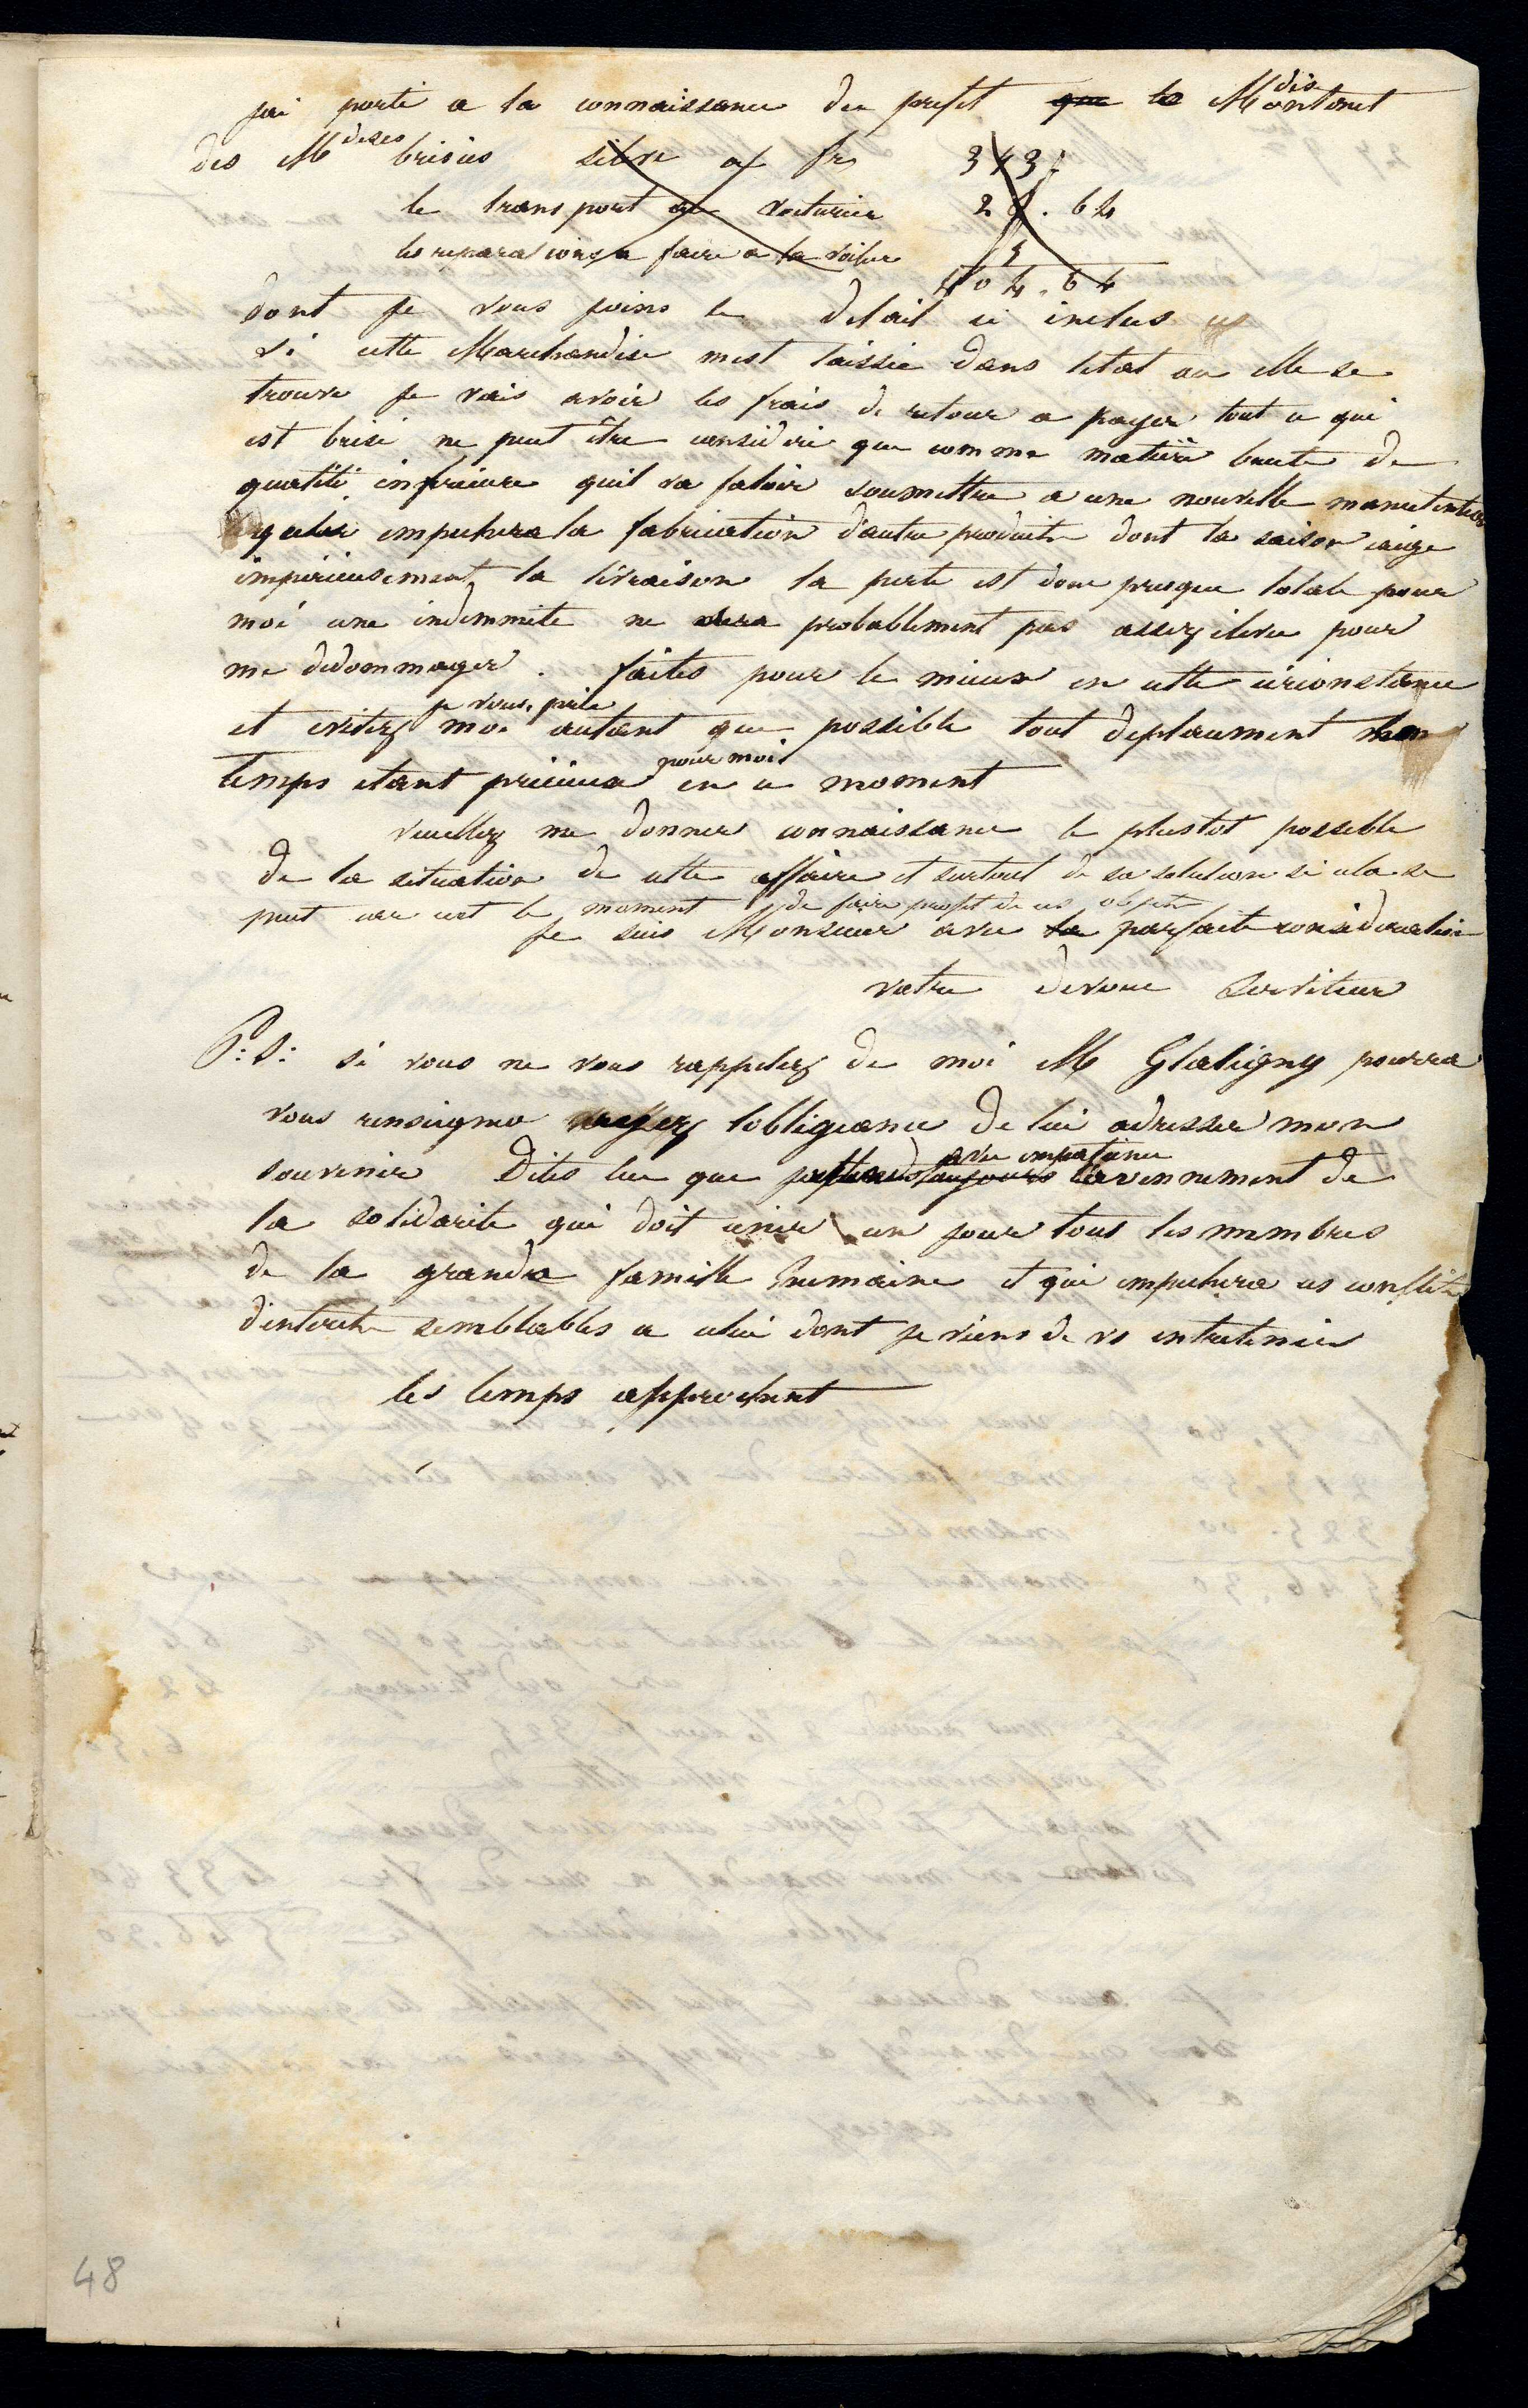 jai porté a la connaissance du prefet que le Montant
des Mdises brisées selve a fr 343
le transport au voiturier 2 . 64
les reparations a faire a la voiture 5
404.64
dont je vous joins le detail ci inclus
si cette Marchandise mest laissée dans letat ou elle se
trouve je vais avoir les frais de retour a payer tout ce qui
est brisé ne peut être consideré que comme matière brute de
qualité inferieure quil va faloir soumettre a une nouvelle manutention
qui empechera la fabrication dautre produits dont la saison exige
imperieusement la livraison la perte est donc presque totale pour
moi une indemnite ne sera probablement pas assez elevee pour
me dedommager. faites pour le mieux en cette circonstance
et evitez moi je vous prie autant que possible tout deplacement mon
temps etant precieux pour moi en ce moment
veuillez me donner connaissance le plustot possible
de la situation de cette affaire et surtout de sa solution si cela se
peut car cest le moment de faire profit de ces objets
je suis Monsieur avec la parfaite consideration
votre devoué Serviteur
P.S: si vous ne vous rappelez de moi M Glatigny pourra
vous renseigner ayez lobligeance de lui adresser mon
souvenir Dites lui que jattends toujours avec impatience lavennement de
la solidarite qui doit unir un jour tous les membres
de la grande famille humaine et qui empechera ces conflits
dinterets semblables a celui dont je viens de vs entretenir
les temps approchent
48